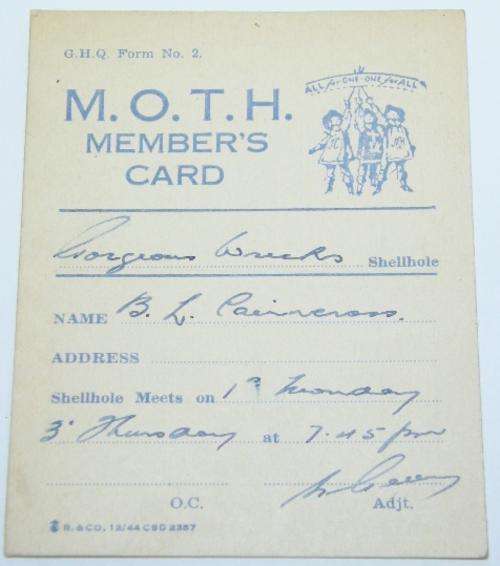 G.H.Q. Form No. 2.
ALL for ONE - ONE for ALL
M.O.T.H.
MEMBER'S
CARD
Gorgeous Wrecks Shellhole
NAME B. L. Cairncross.
ADDRESS
Shellhole Meets on 1st Monday
3rd Thursday at 7.45 pm
O.C. Adjt.
R. & CO. 12/44 CSD 2357